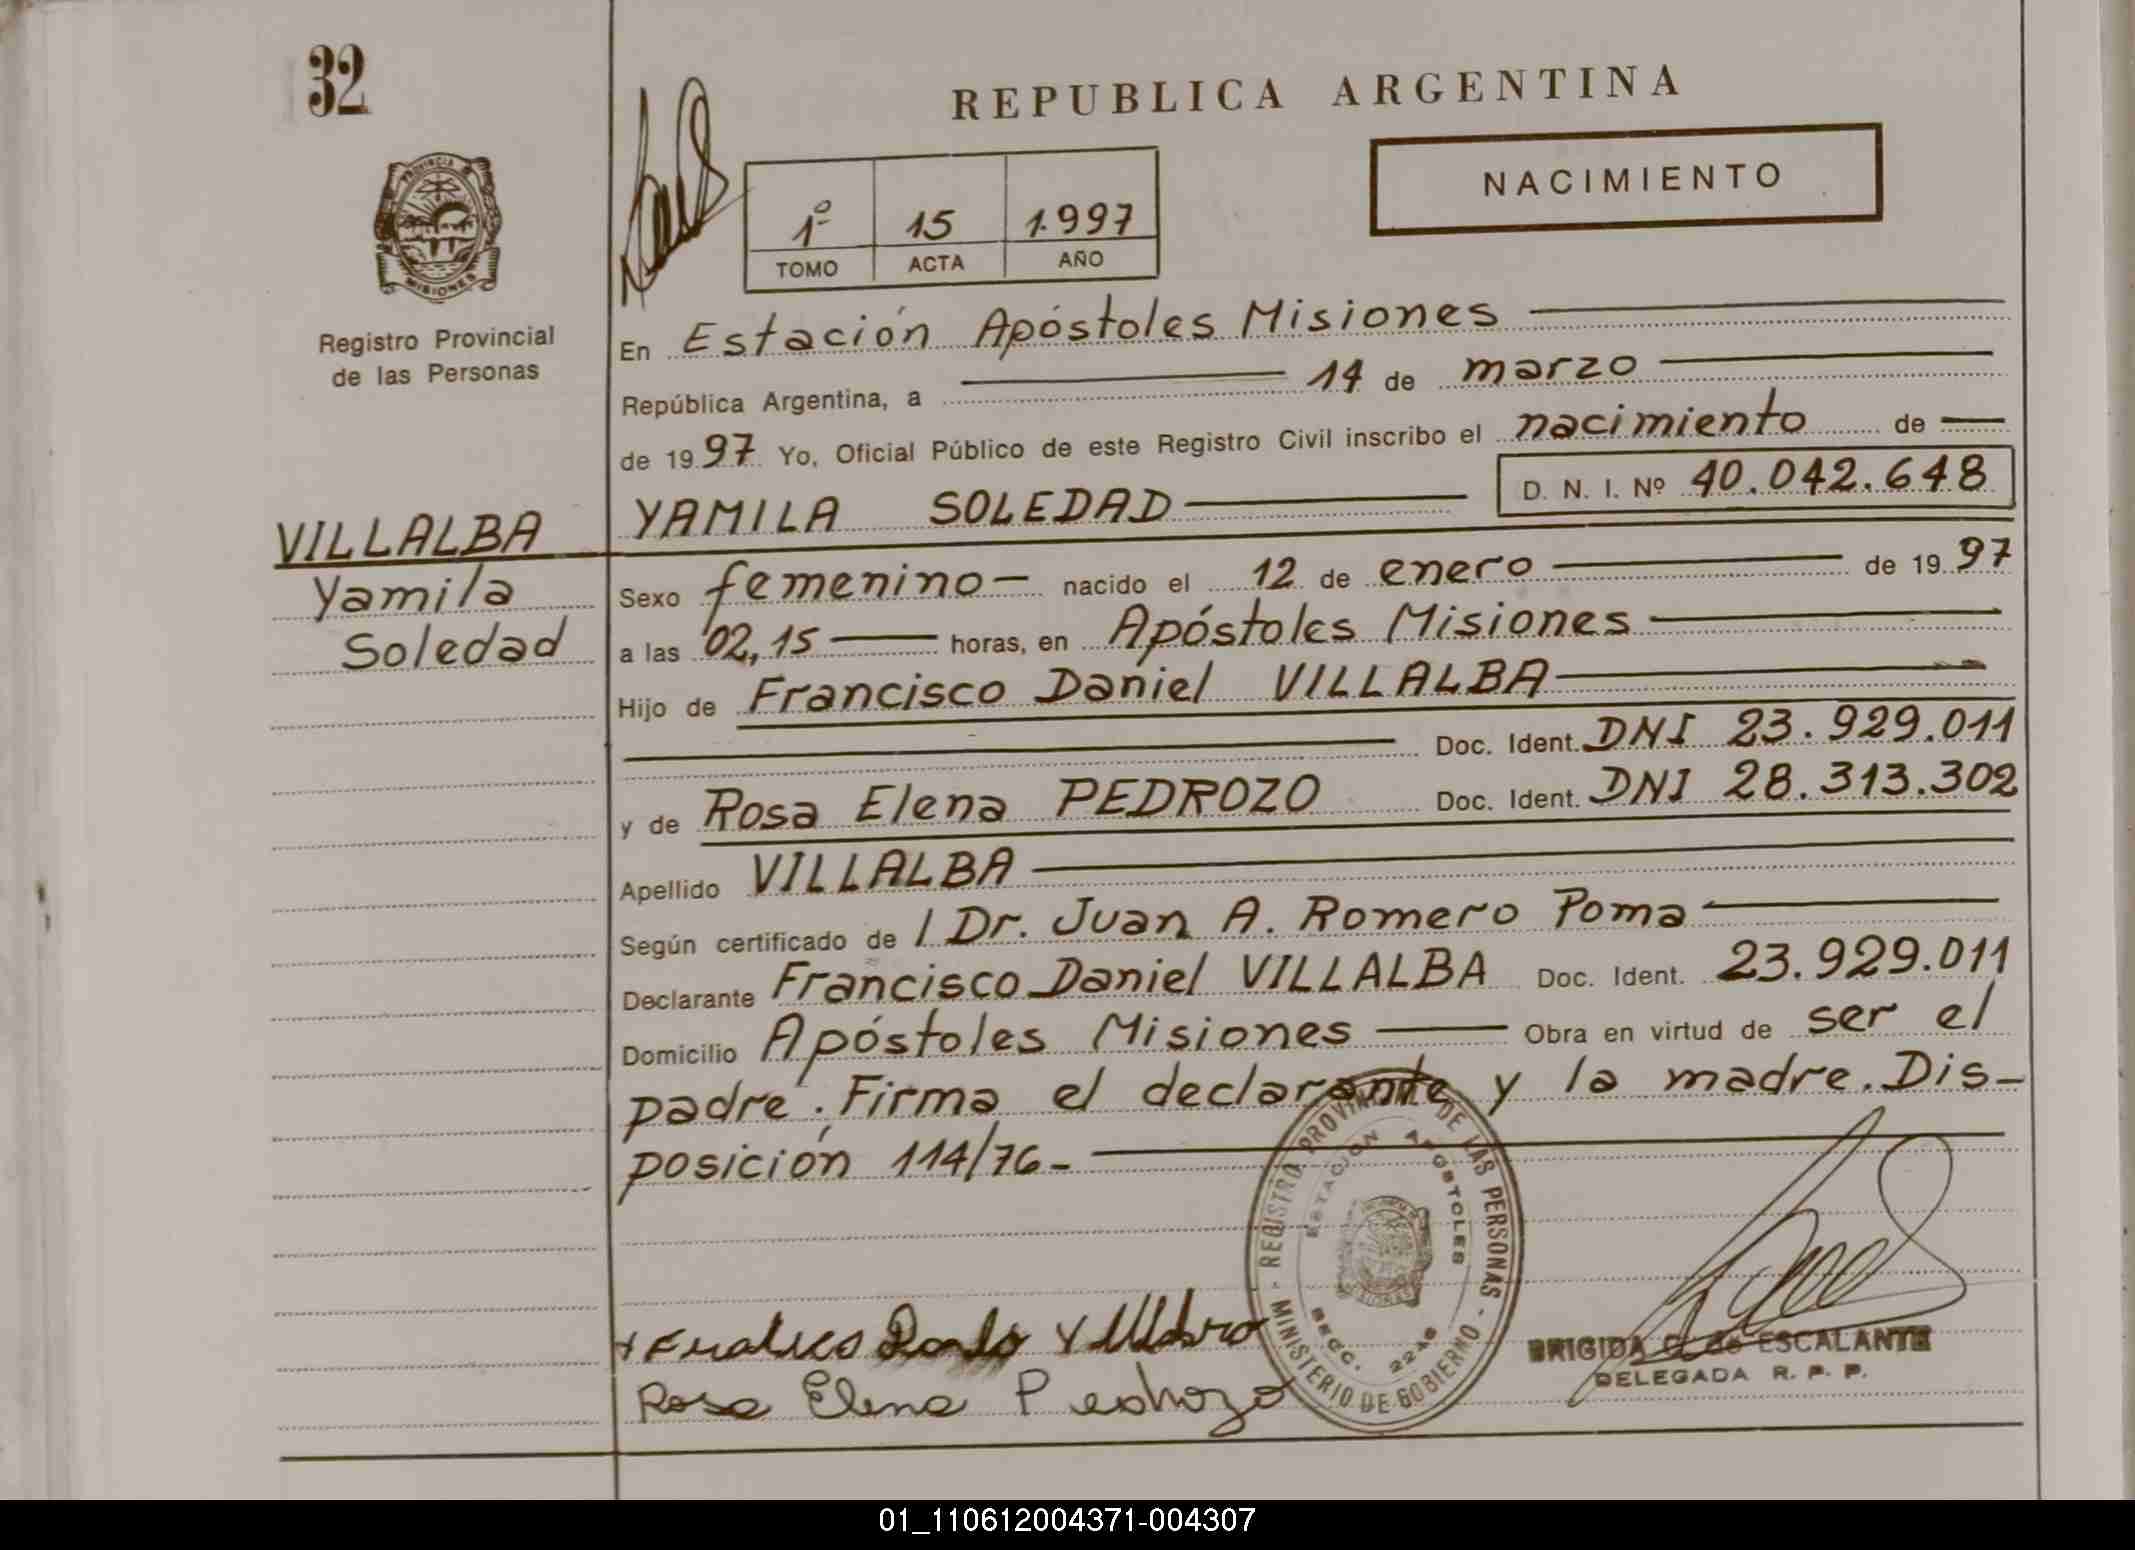 32
REPUBLICA ARGENTINA
NACIMIENTO
PROVINCIA
MISIONES
1º 15 1.997
TOMO ACTA AÑO
Registro Provincial
de las Personas
En Estación Apóstoles Misiones
República Argentina, a 14 de marzo
de 1997 Yo, Oficial Público de este Registro Civil inscribo el nacimiento de
D. N. I. Nº 40.042.648
VILLALBA YAMILA SOLEDAD
Yamila
Soledad
Sexo femenino - nacido el 12 de enero de 1997
a las 02,15 horas, en Apóstoles Misiones
Hijo de Francisco Daniel VILLALBA
Doc. Ident. DNI 23.929.011
y de Rosa Elena PEDROZO Doc. Ident. DNI 28.313.302
Apellido VILLALBA
Según certificado de / Dr. Juan A. Romero Poma
Declarante Francisco Daniel VILLALBA Doc. Ident. 23.929.011
Domicilio Apóstoles Misiones Obra en virtud de ser el
padre. Firma el declarante y la madre. Dis-
posición 114/76-
REGISTRO PROVINCIAL DE LAS PERSONAS
ESTACION APOSTOLES
SECC. 2248
MINISTERIO DE GOBIERNO
Rosa Elena Pedrozo
BRIGIDA G. de ESCALANTE
DELEGADA R. P. P.
01_110612004371-004307